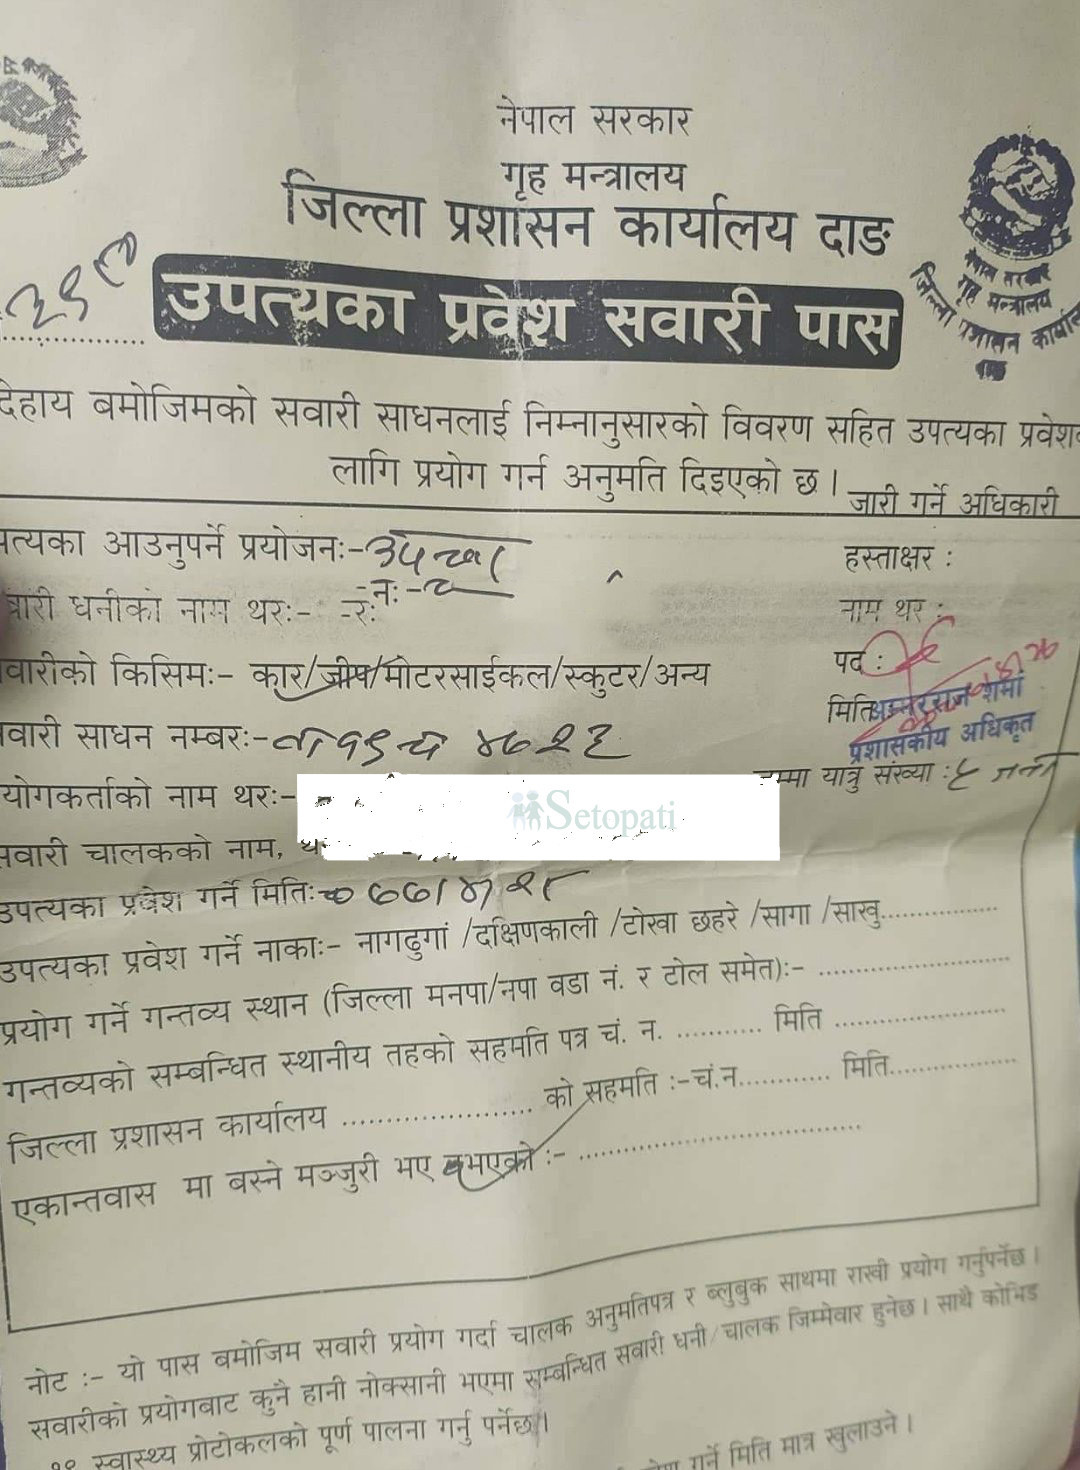 नेपाल सरकार
गृह मन्त्रालय
जिल्ला प्रशासन कार्यालय दाङ
उपत्यका प्रवेश सवारी पास
नेपाल सरकार
गृह मन्त्रालय
जिल्ला प्रशासन
देहाय बमोजिमको सवारी साधनलाई निम्नानुसारको विवरण सहित उपत्यका
लागि प्रयोग गर्न अनुमति दिइएको छ।
जारी गर्ने अधिकारी
आउनुपर्ने प्रयोजनः-
हस्ताक्षर :
धनीको नाम थरः-
नाम थर :
किसिमः- कार/जीप/मोटरसाईकल/स्कुटर/अन्य
पद :
मिति
शर्मा
प्रशासकीय अधिकृत
साधन नम्बरः-
यात्रु संख्या :
नाम थरः-
Setopati
चालकको नाम,
उपत्यका प्रवेश गर्ने मितिः-
उपत्यका प्रवेश गर्ने नाकाः- नागढुगां /दक्षिणकाली /टोखा छहरे /सागा /साखु..................
प्रयोग गर्ने गन्तव्य स्थान (जिल्ला मनपा/नपा वडा नं. र टोल समेत):- ..............................
गन्तव्यको सम्बन्धित स्थानीय तहको सहमति पत्र चं. न. ............ मिति ..........................
जिल्ला प्रशासन कार्यालय ........................... को सहमति :-चं.न............. मिति..................
एकान्तवास मा बस्ने मञ्जुरी भए नभएको :- ........................................
नोट :- यो पास बमोजिम सवारी प्रयोग गर्दा चालक अनुमतिपत्र र ब्लुबुक साथमा राखी प्रयोग गर्नुपर्नेछ।
सवारीको प्रयोगबाट कुनै हानी नोक्सानी भएमा सम्बन्धित सवारी धनी/चालक जिम्मेवार हुनेछ। साथै कोभिड
१९ स्वास्थ्य प्रोटोकलको पूर्ण पालना गर्नु पर्नेछ।
गर्ने मिति मात्र खुलाउने।